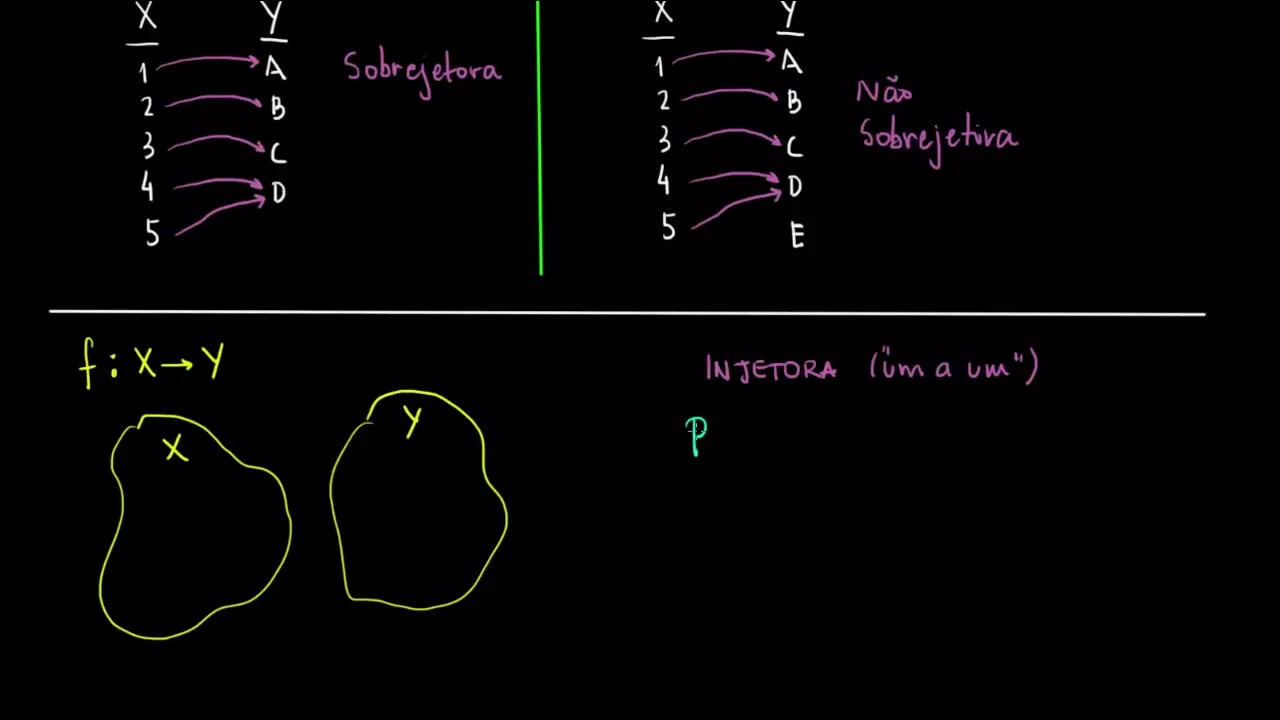 X Y
1 A
2 B
3 C
4 D
5
Sobrejetora
X Y
1 A
2 B
3 C
4 D
5 E
Não
Sobrejetiva
f: X → Y
X
Y
INJETORA ("um a um")
P